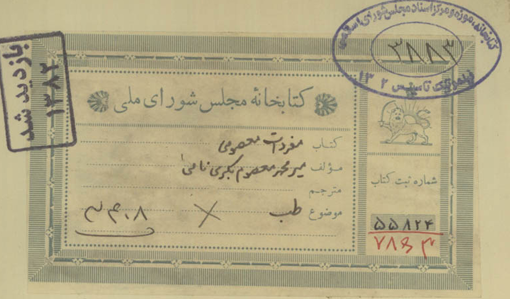 کتابخانه، موزه و مرکز اسناد مجلس شورای اسلامی
۳۸۸۳
تأسیس ۱۳۰۲
بازدید شد
۱۳۸۲
کتابخانهٔ مجلس شورای ملی
کتاب مفردات معصومی
مؤلف میر محمد معصوم بکری نامی
مترجم
موضوع طب
شماره ثبت کتاب
۵۵۸۲۴